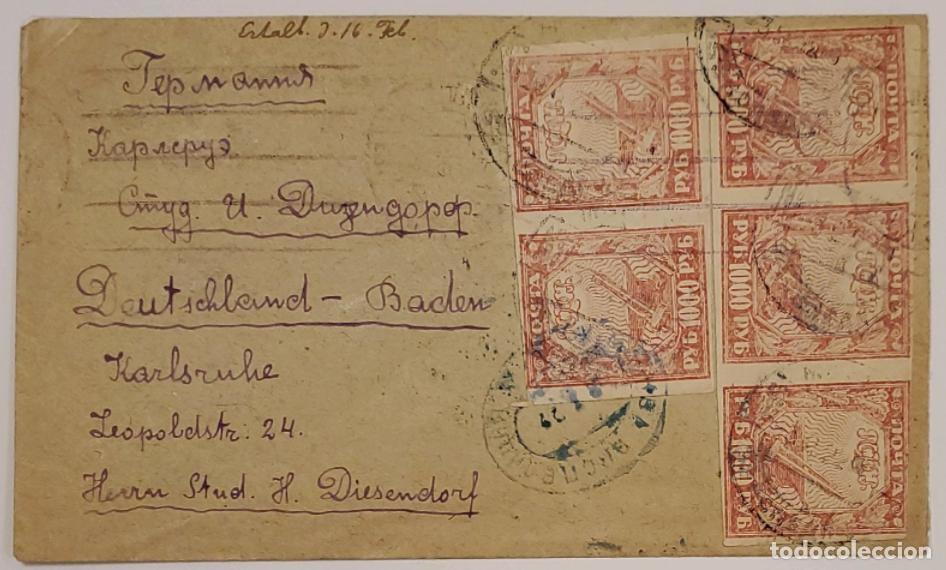 Erhalt. d. 16. Feb.
Германия
Карлсруэ
Студ. И. Дизендорф.
Deutschland – Baden
Karlsruhe
Leopoldstr. 24.
Herrn Stud. H. Diesendorf
ПОЧТА
РУБ 1000 РУБ
ПОЧТА
РУБ 1000 РУБ
ПОЧТА
РУБ 1000 РУБ
ПОЧТА
РУБ 1000 РУБ
ПОЧТА
РУБ 1000 РУБ
todocoleccion